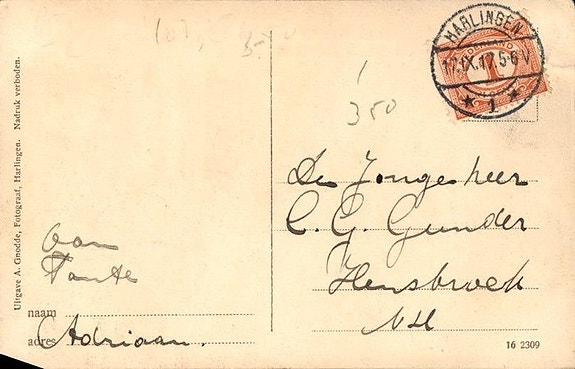 HARLINGEN
17.IX.17.5-6V
1
1
350
De Jongeheer
C. G. Gunder
Hensbroek
NH
Tante
Adriaan.
naam
adres
Uitgave A. Gnodde, Fotograaf, Harlingen. Nadruk verboden.
16 2309